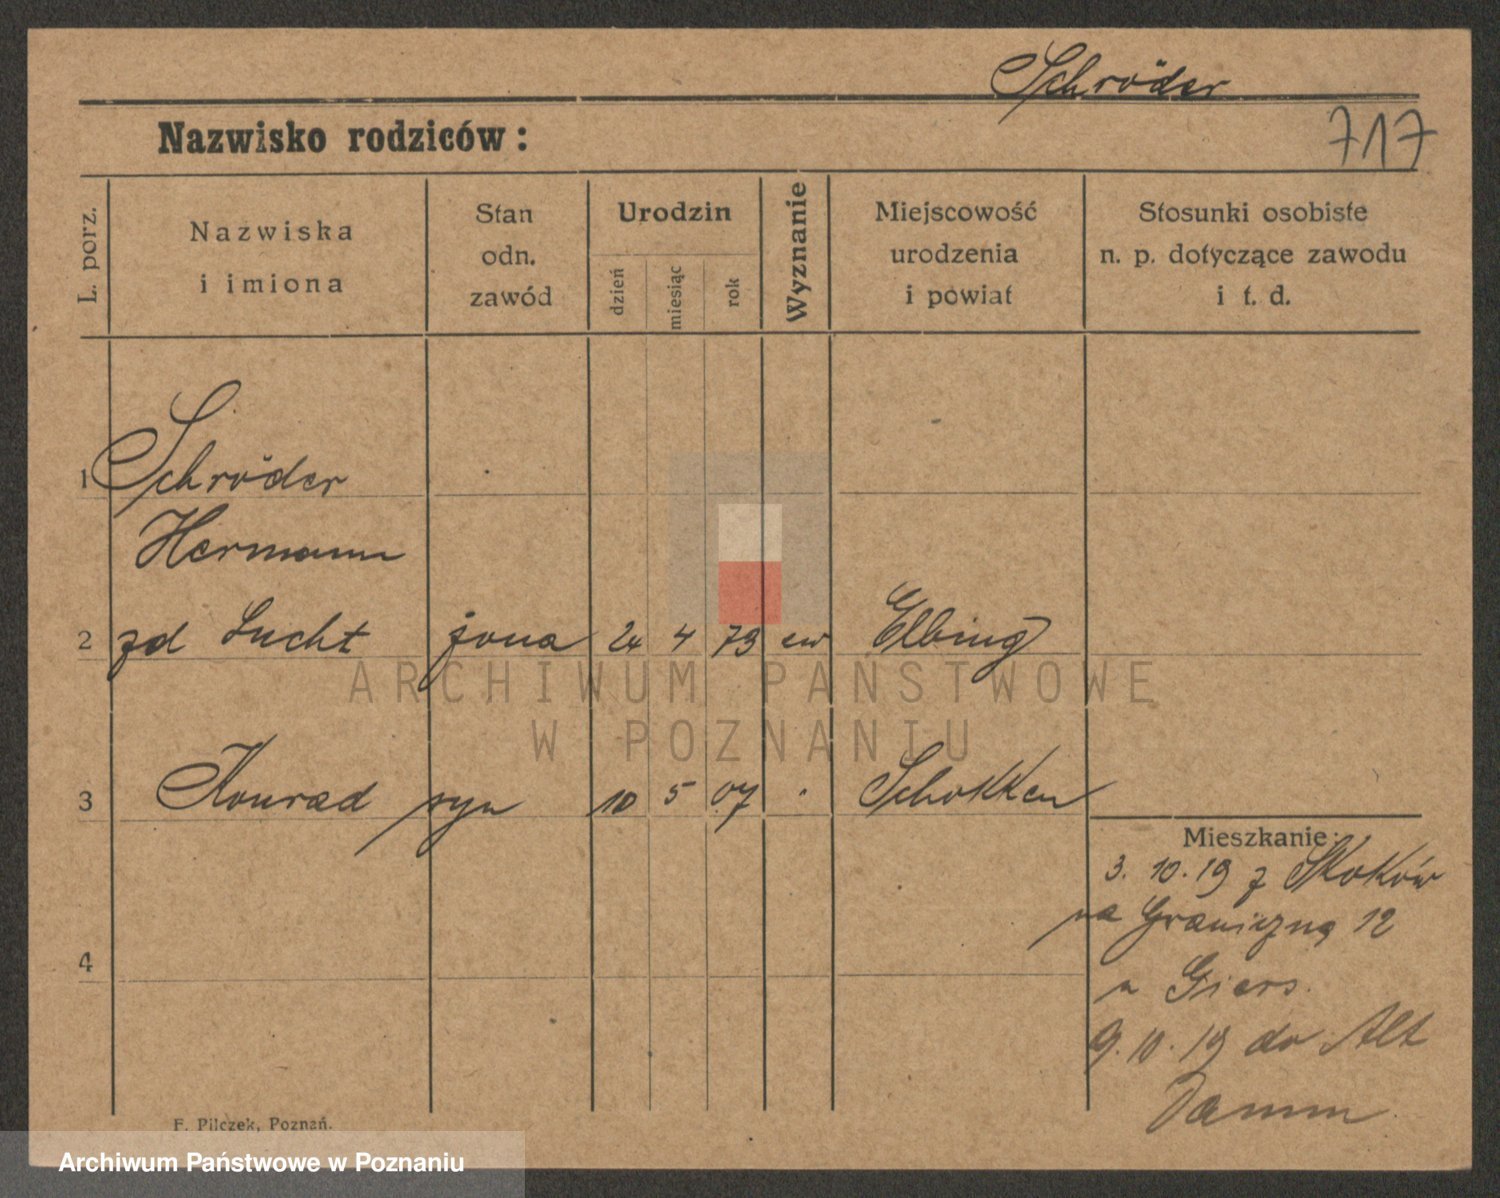 Schröder
Nazwisko rodziców :
717
L. porz.
Nazwiska
i imiona
Stan
odn.
zawód
Urodzin
dzień
miesiąc
rok
Wyznanie
Miejscowość
urodzenia
i powiat
Stosunki osobiste
n. p. dotyczące zawodu
i t. d.
1 Schröder
Hermann
2 zd Lucht żona 24 4 79 ew Elbing
3 Konrad syn 10 5 07 Schokken
4
Mieszkanie:
3. 10. 19 z Skoków
na Graniczną 12
u Giers.
9. 10. 19 do Alt
Damm
F. Pilczek, Poznań.
ARCHIWUM PAŃSTWOWE
W POZNANIU
Archiwum Państwowe w Poznaniu